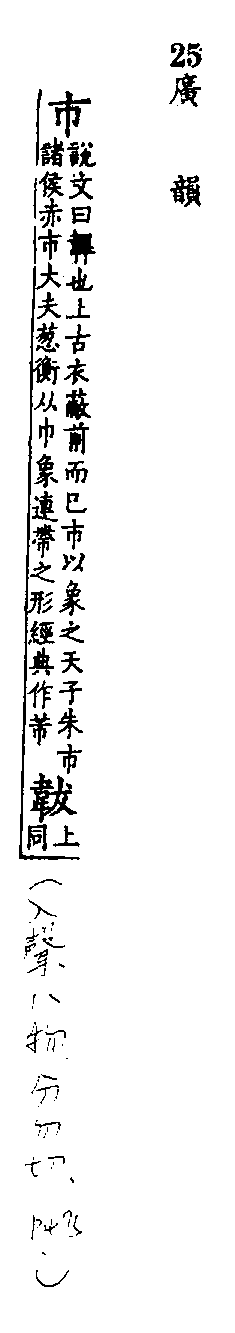 25
廣韻
市
說文曰韠也上古衣蔽前而已市以象之天子朱市
諸侯赤市大夫葱衡从巾象連帶之形經典作芾
韍
上同
(入聲、八物、分勿切、